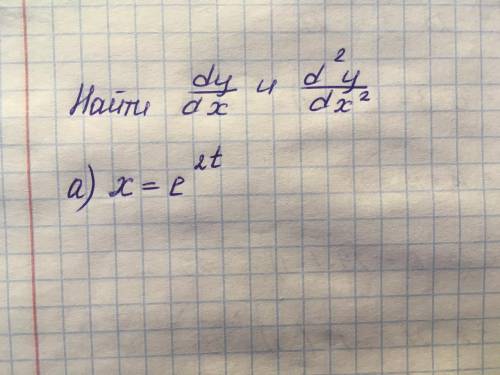 Найти dy/dx и d²y/dx²
а) x = e^2t